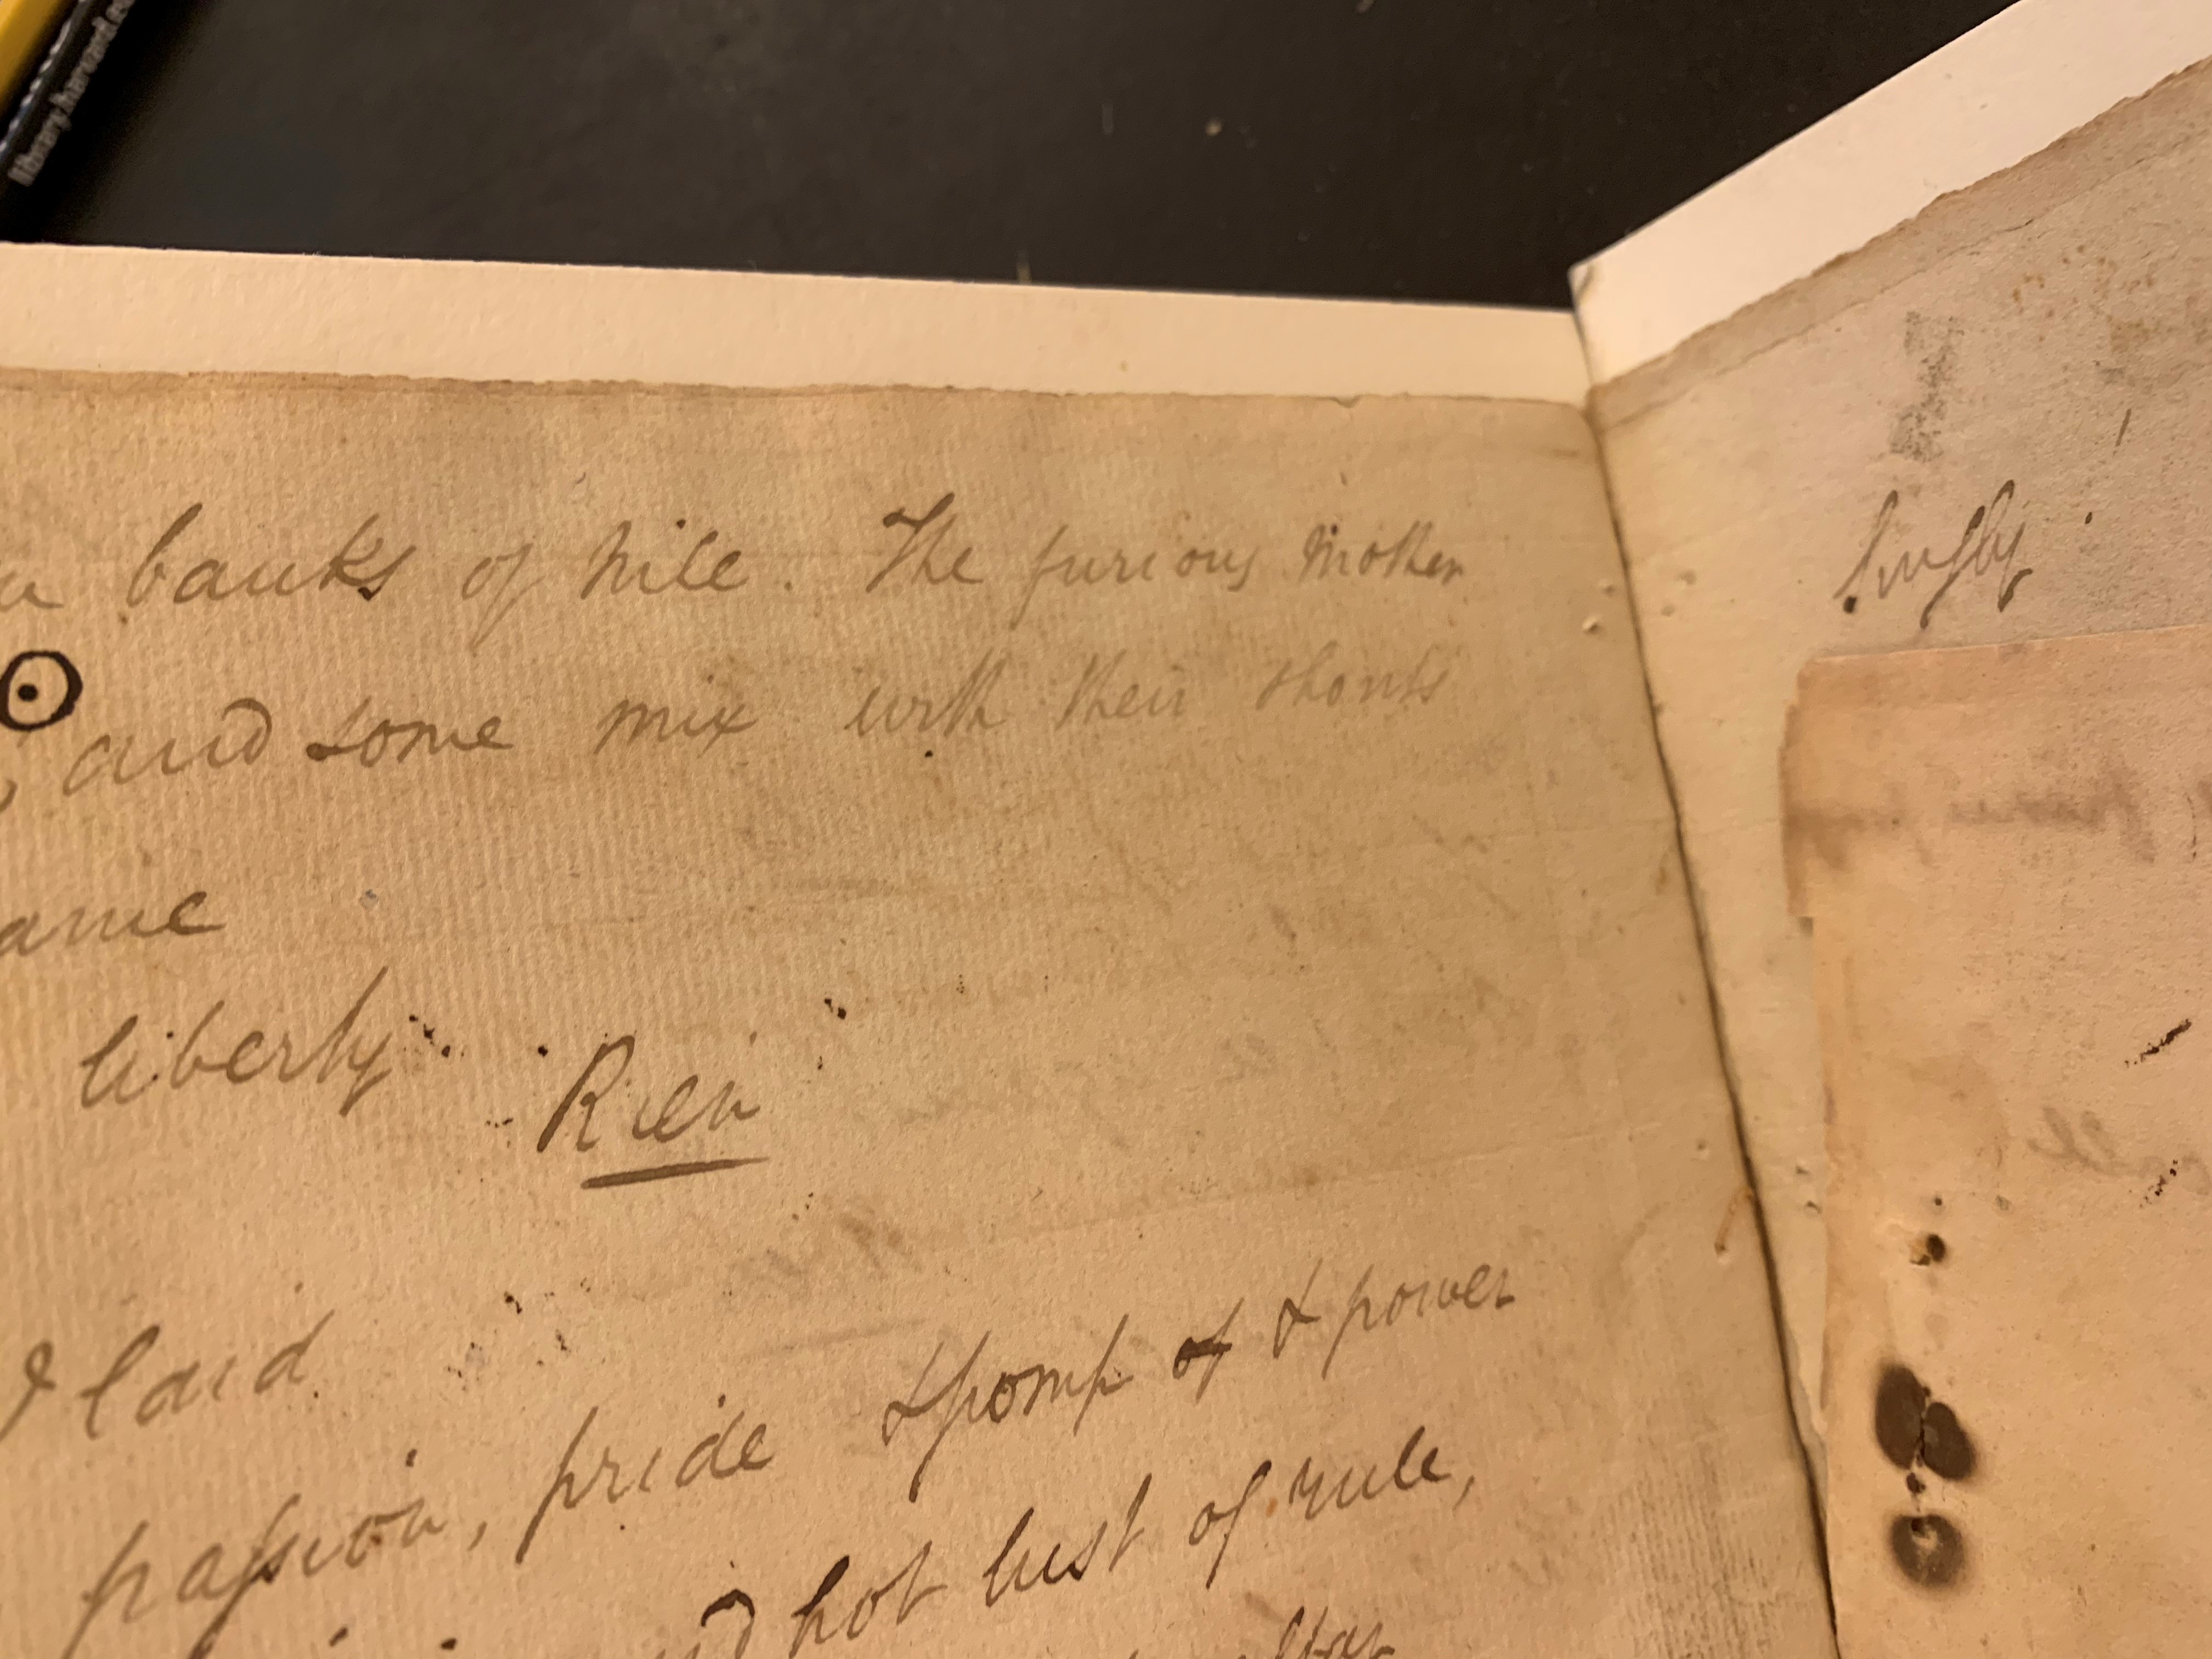 library.harvard.e
banks of Nile. The furious Mother
, and some mix with their shouts
ame
liberty. Rien
& laid
passion, pride & pomp of & power
hot lust of rule,